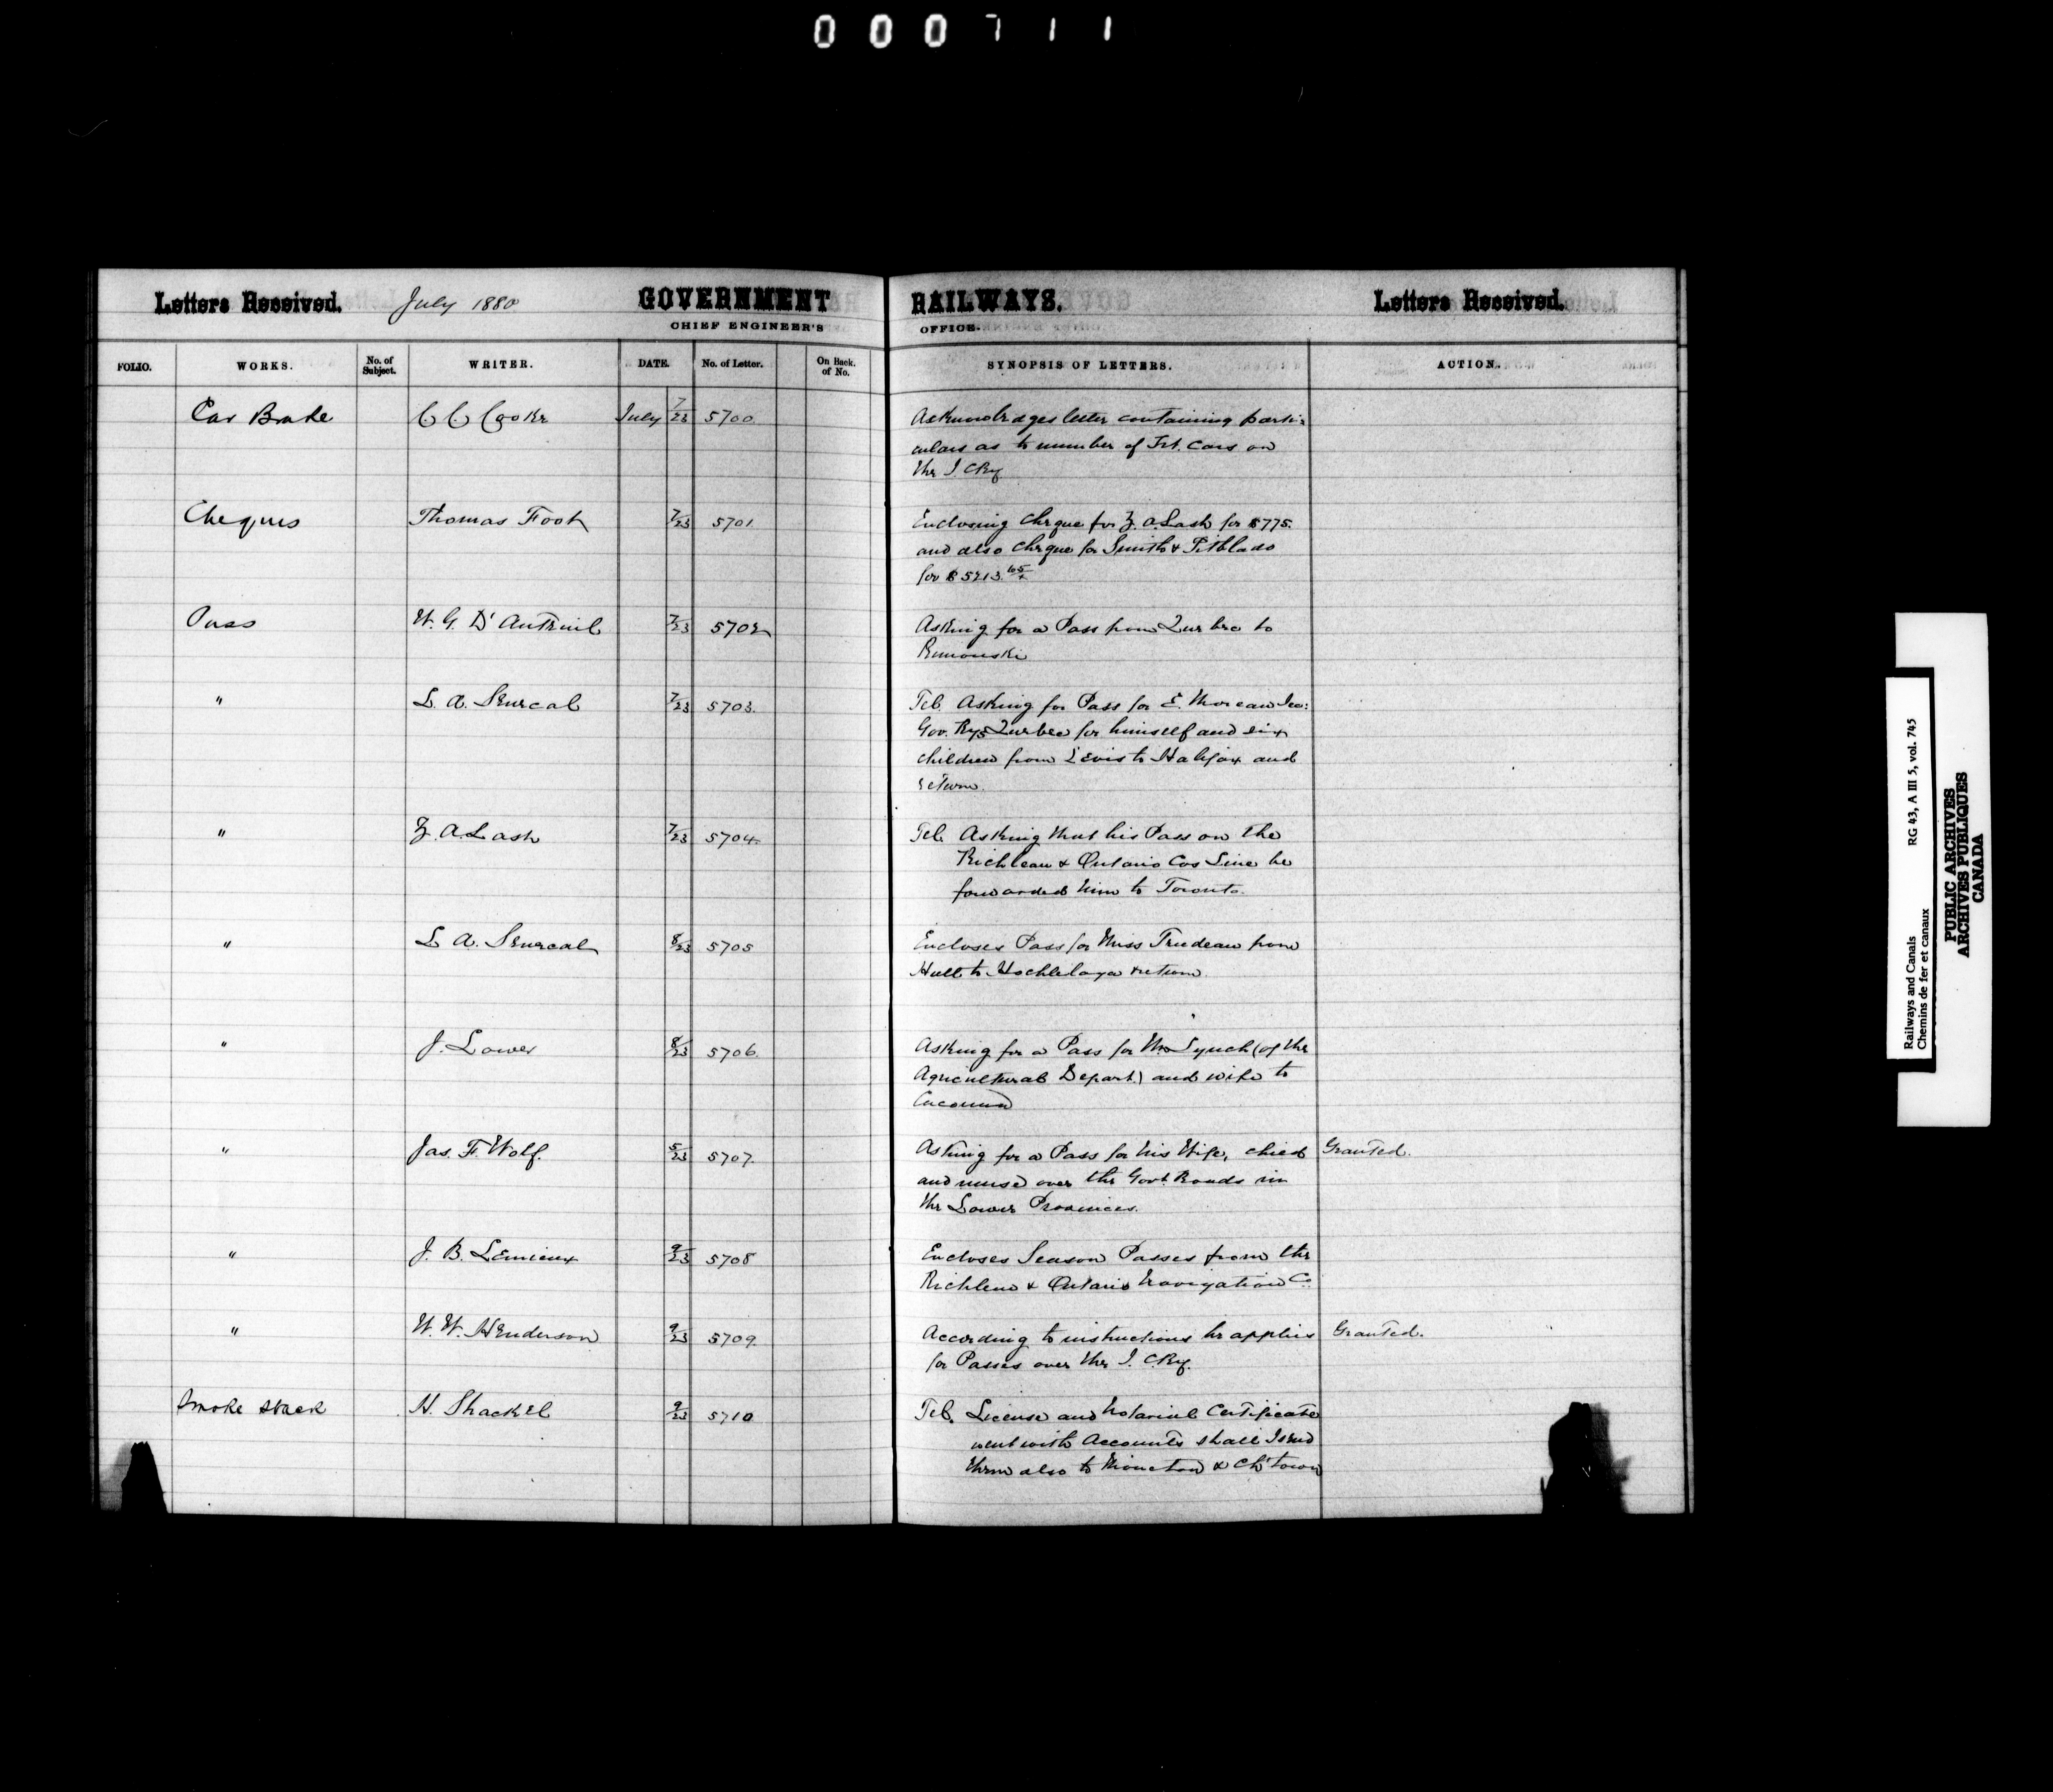 000711
Letters Received. July 1880 GOVERNMENT RAILWAYS. Letters Received.
CHIEF ENGINEER'S OFFICE.
FOLIO. WORKS. No. of Subject. WRITER. DATE. No. of Letter. On Back. of No. SYNOPSIS OF LETTERS. ACTION.
Car Brake C. C. Cooke July 7/23 5700 Acknowledges letter containing parti-
culars as to number of Frt. Cars on
the I. C Ry
Cheques Thomas Foot 7/23 5701. Enclosing cheque for Z. A. Lash for $775.
and also cheque for Smith & Pitblado
for $5213.65
Pass W. G. D'Auteuil 7/23 5702 Asking for a Pass from Quebec to
Rimouski
" L. A. Senecal 7/23 5703. Tel. Asking for Pass for E. Moreau Sec:
Gov. Rys Quebec for himself and six
children from Levis to Halifax and
return.
" Z. A. Lash 7/23 5704. Tel. Asking that his Pass on the
Richleau & Ontario Cos Line be
forwarded him to Toronto.
" L. A. Senecal 8/23 5705 Encloses Pass for Miss Trudeau from
Hull to Hochlelaga & return.
" J. Lowe 8/23 5706. Asking for a Pass for Mr Lynch (of the
Agricultural Depart.) and wife to
Cacouna
" Jas. F. Wolf. 5/23 5707. Asking for a Pass for his Wife, child Granted.
and nurse over the Govt. Roads in
the Lower Provinces.
" J. B. Lemieux 9/23 5708 Encloses Season Passes from the
Richleu & Ontario Navigation Co.
" W. W. Henderson 9/23 5709. According to instructions he applies Granted.
for Passes over the I. C. Ry.
Smoke Stack H. Shackel 9/23 5710 Tel. License and Notarial Certificate
went with Accounts shall I send
them also to Moncton & Ch'town
Railways and Canals RG 43, A III 5, vol. 745
Chemins de fer et canaux
PUBLIC ARCHIVES
ARCHIVES PUBLIQUES
CANADA